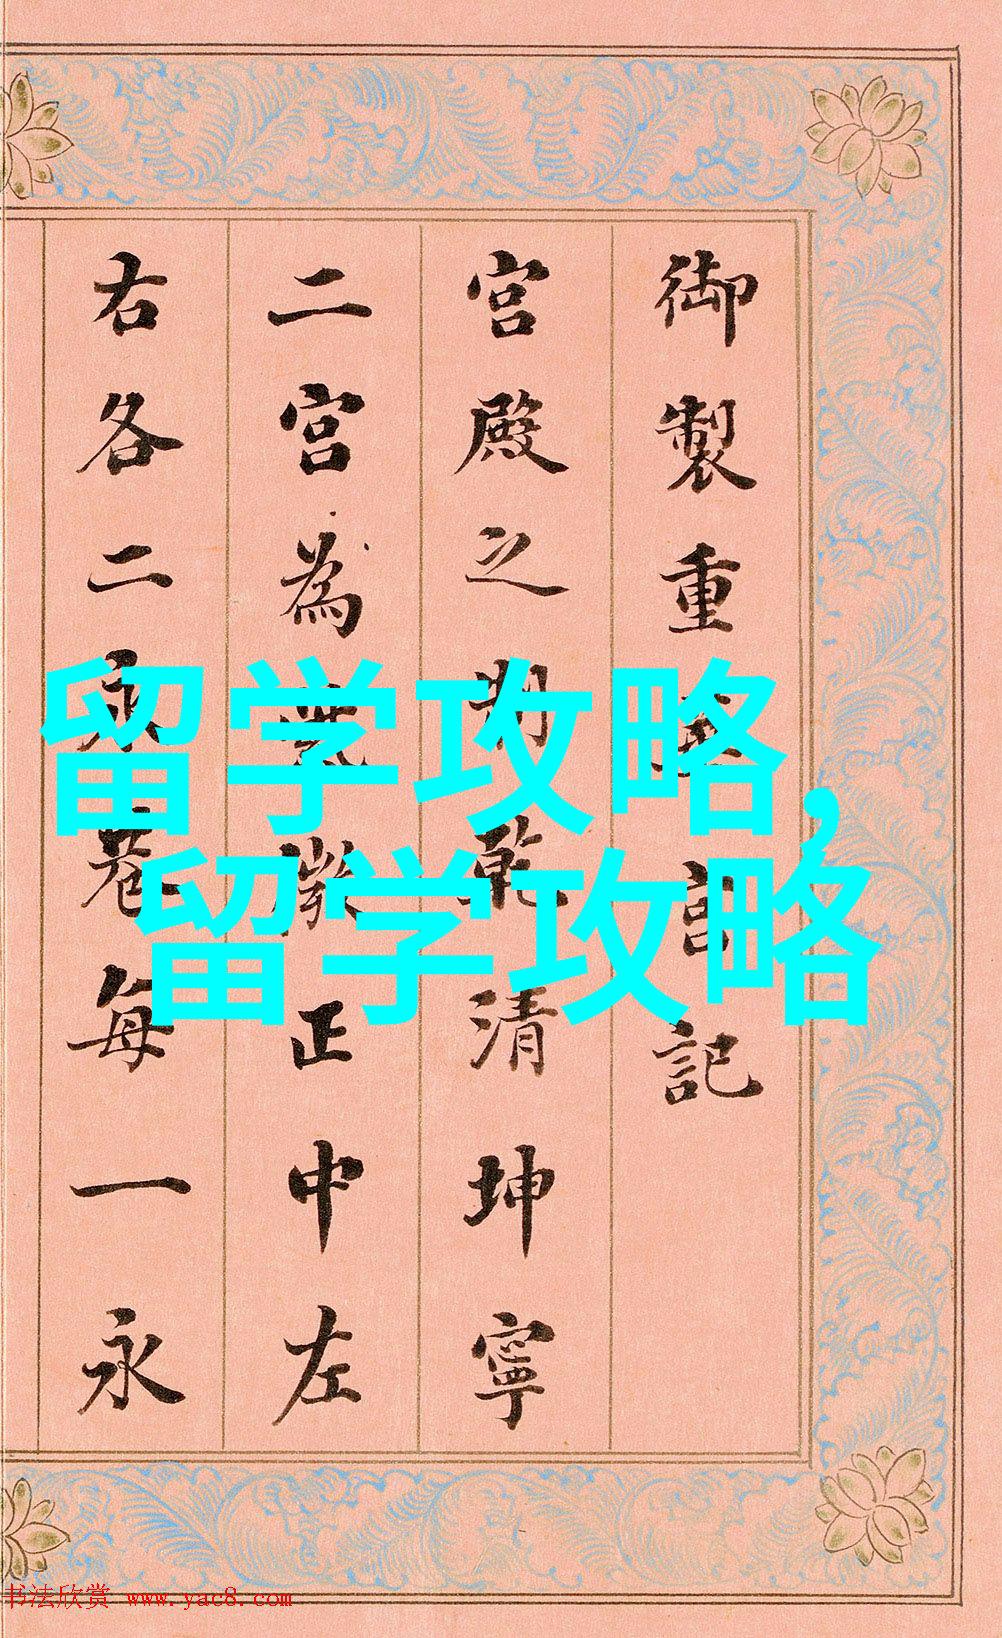 御製重宮記
宮殿之乾清坤寧
二宮為正中左
右各二永巷每一永
留学攻略,
留学攻略
书法欣赏 www.yac8.com